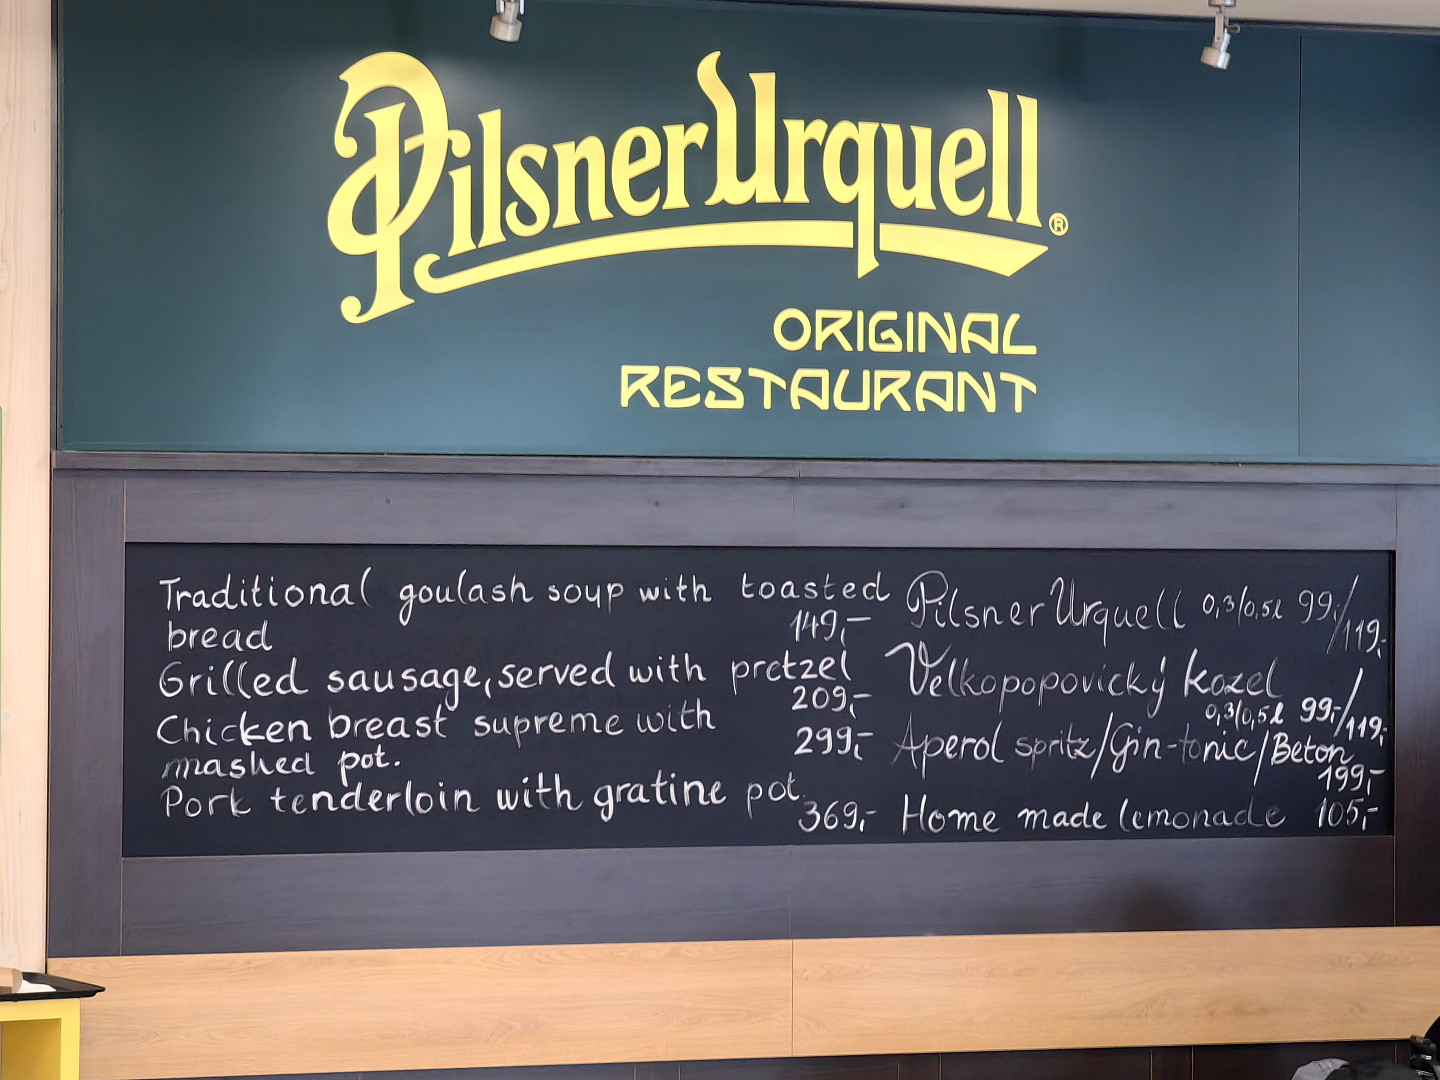 Pilsner Urquell®
ORIGINAL
RESTAURANT
Traditional goulash soup with toasted
bread 149,-
Grilled sausage, served with pretzel
209,-
Chicken breast supreme with
mashed pot. 299,-
Pork tenderloin with gratine pot.
369,-
Pilsner Urquell 0,3/0,5l 99,-/119,-
Velkopopovický kozel
0,3/0,5l 99,-/119,-
Aperol spritz/Gin-tonic/Beton
199,-
Home made lemonade 105,-